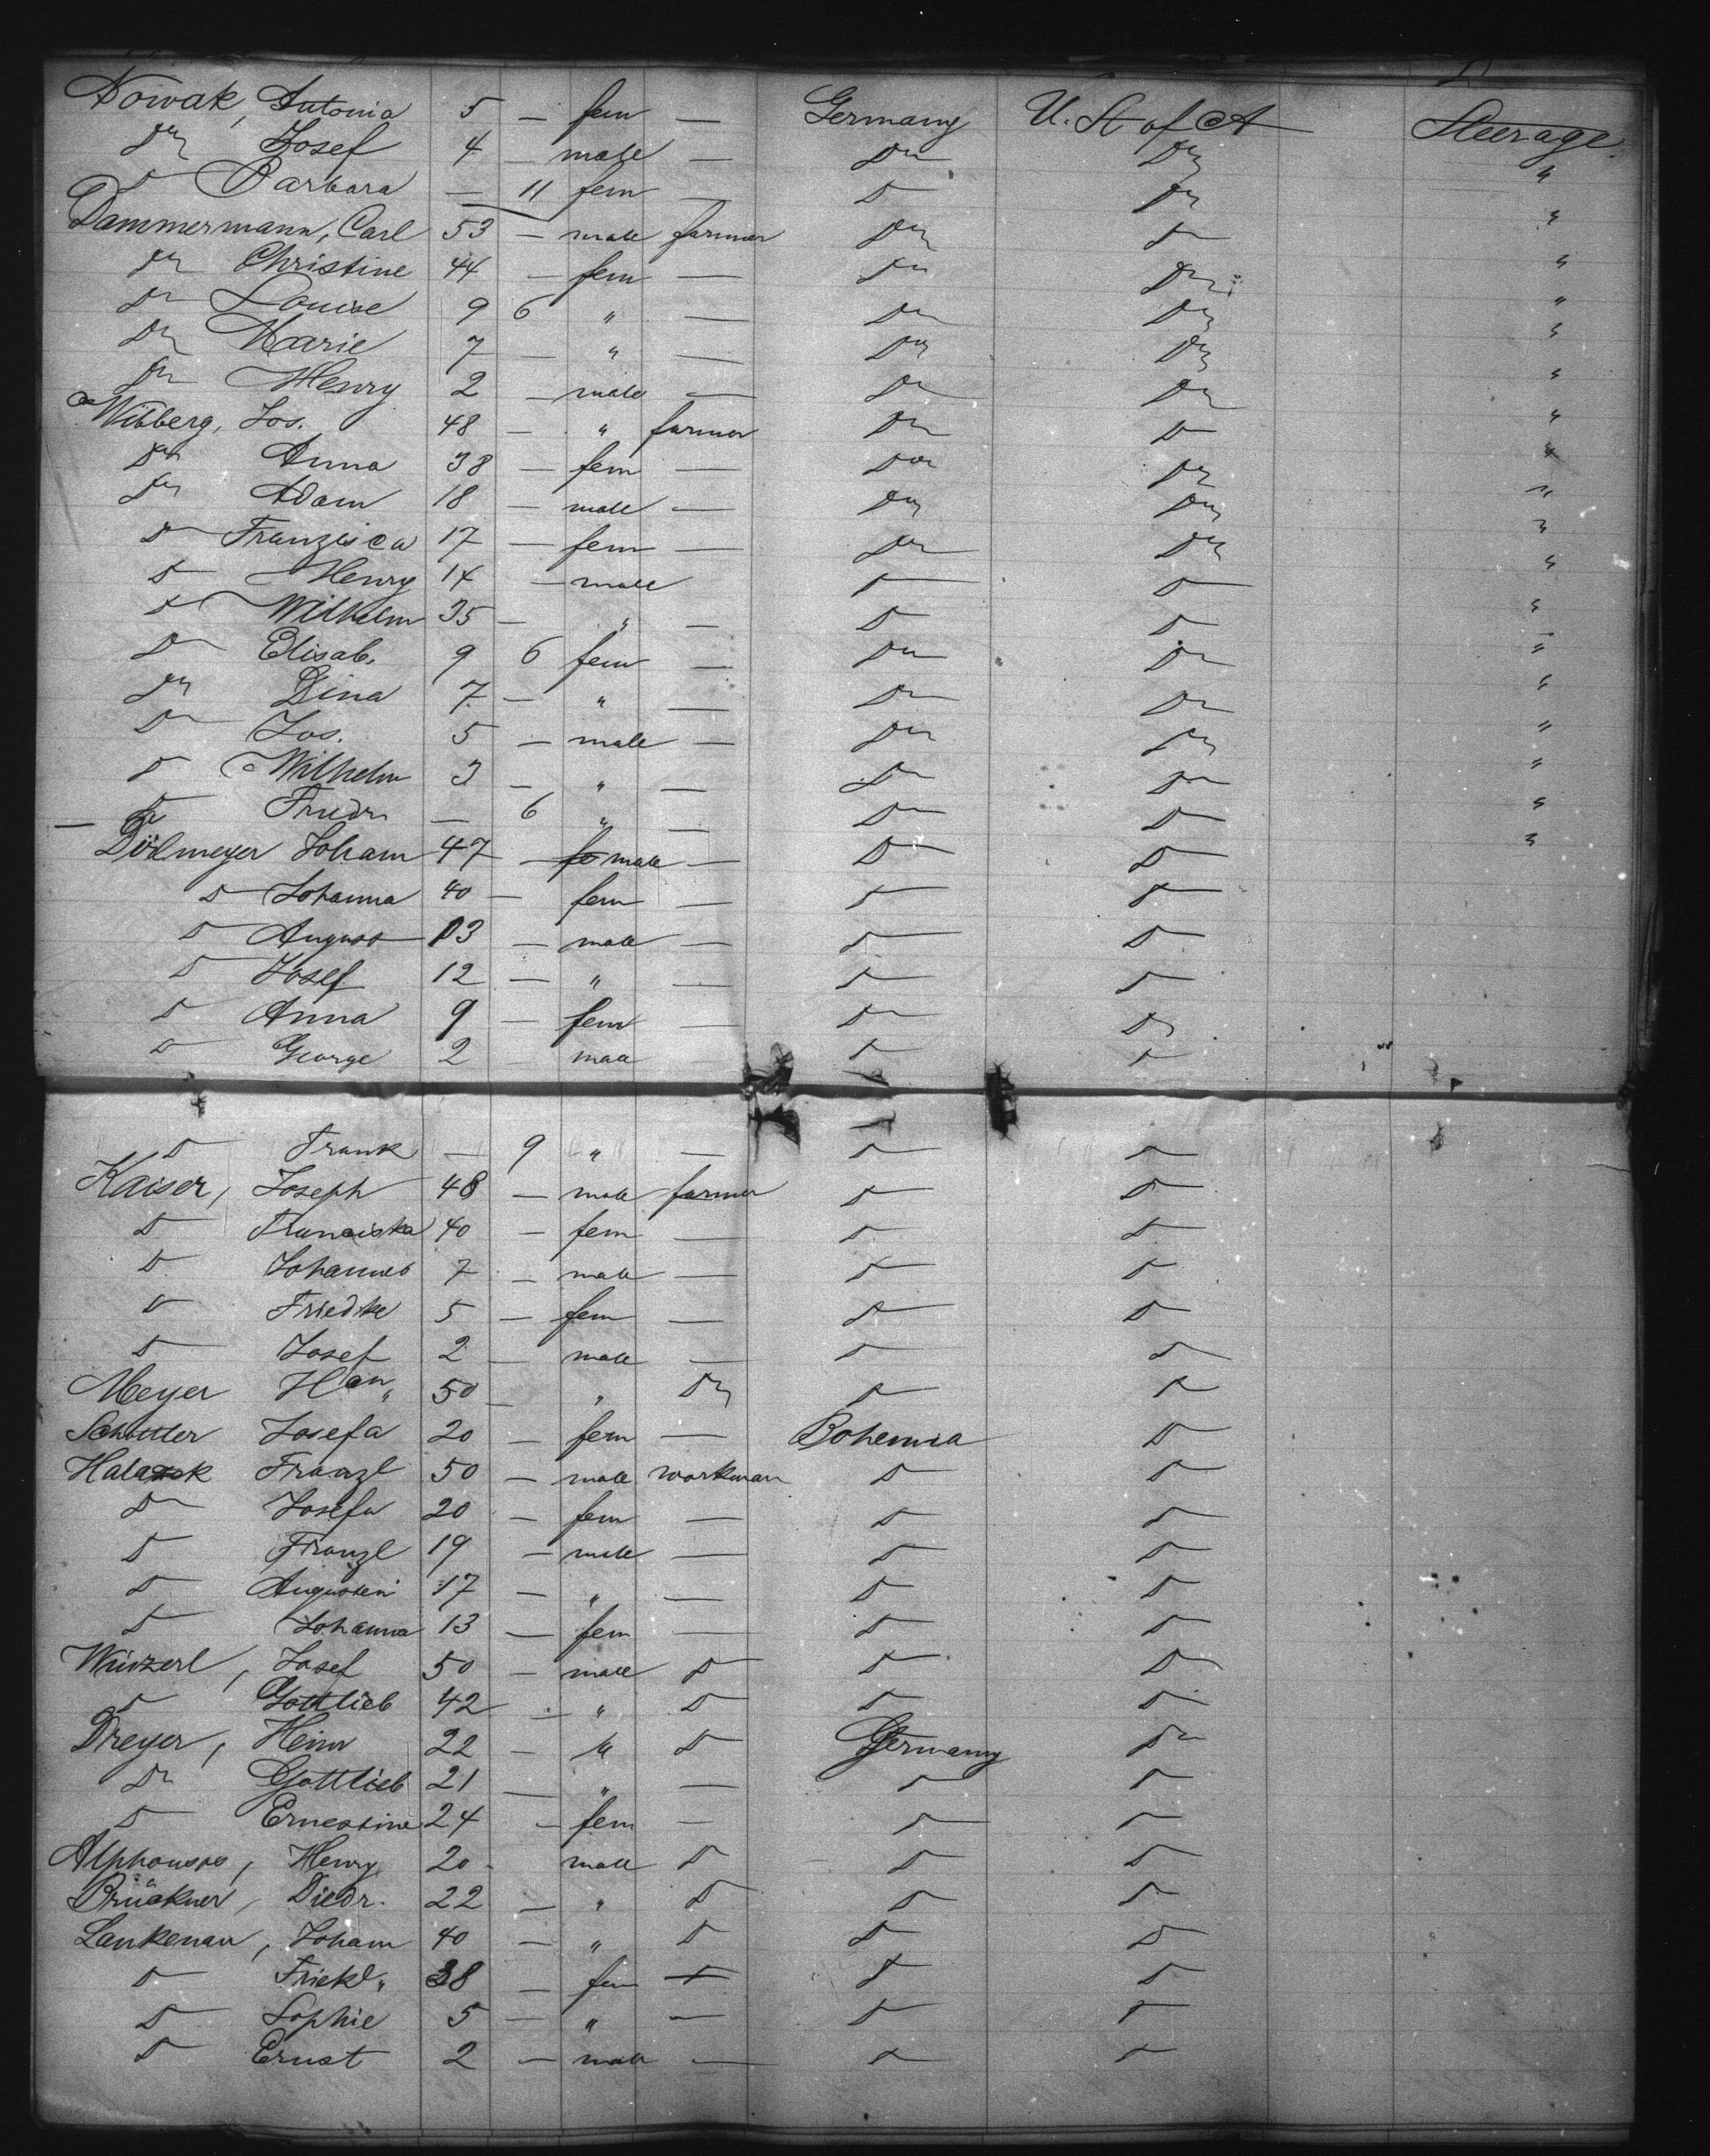 Nowak, Antonia 5 — fem — Germany U. St of A Steerage
Do Josef 4 — male — Do Do "
Do Barbara — 11 fem — Do Do "
Dammermann, Carl 53 — male farmer Do Do "
Do Christine 44 — fem — Do Do "
Do Louise 9 6 " — Do Do "
Do Marie 7 — " — Do Do "
Do Henry 2 — male — Do Do "
Wibberg, Jos. 48 — " farmer Do Do "
Do Anna 38 — fem — Do Do "
Do Adam 18 — male — Do Do "
Do Franzisca 17 — fem — Do Do "
Do Henry 14 — male Do Do "
Do Wilhelm 35 — " — Do Do "
Do Elisab. 9 6 fem — Do Do "
Do Dina 7 — " — Do Do "
Do Jos. 5 — male — Do Do "
Do Wilhelm 3 — " — Do Do "
Do Friedr. — 6 " — Do Do "
Johann 47 — male — Do Do "
Do Johanna 40 — fem — Do Do
Do August 13 — male — Do Do
Do Josef 12 — " — Do Do
Do Anna 9 — fem — Do Do
Do George 2 male Do Do
Do Frank — 9 " — Do Do
Kaiser, Joseph 48 — male farmer Do Do
Do Franciska 40 — fem — Do Do
Do Johannes 7 — male — Do Do
Do Friedke 5 — fem — Do Do
Do Josef 2 — male — Do Do
Meyer Han " 50 — " Do Do Do
Josefa 20 — fem — Bohemia Do
Franzl 50 — male workman Do Do
Do Josefa 20 — fem — Do Do
Do Franzl 19 — male — Do Do
Do Augustin 17 — " — Do Do
Do Johanna 13 — fem — Do Do
Josef 50 — male Do Do Do
Do Gottlieb 42 — " Do Do Do
Dreyer, Heinr 22 — " Do Germany Do
Do Gottlieb 21 — " — Do Do
Do Ernestine 24 — fem — Do Do
Henry 20 male Do Do Do
Brückner, Diedr. 22 — " Do Do Do
Lankenau, Johann 40 — " Do Do Do
Do 38 — fem — Do Do
Do Sophie 5 — " — Do Do
Do Ernst 2 — male — Do Do